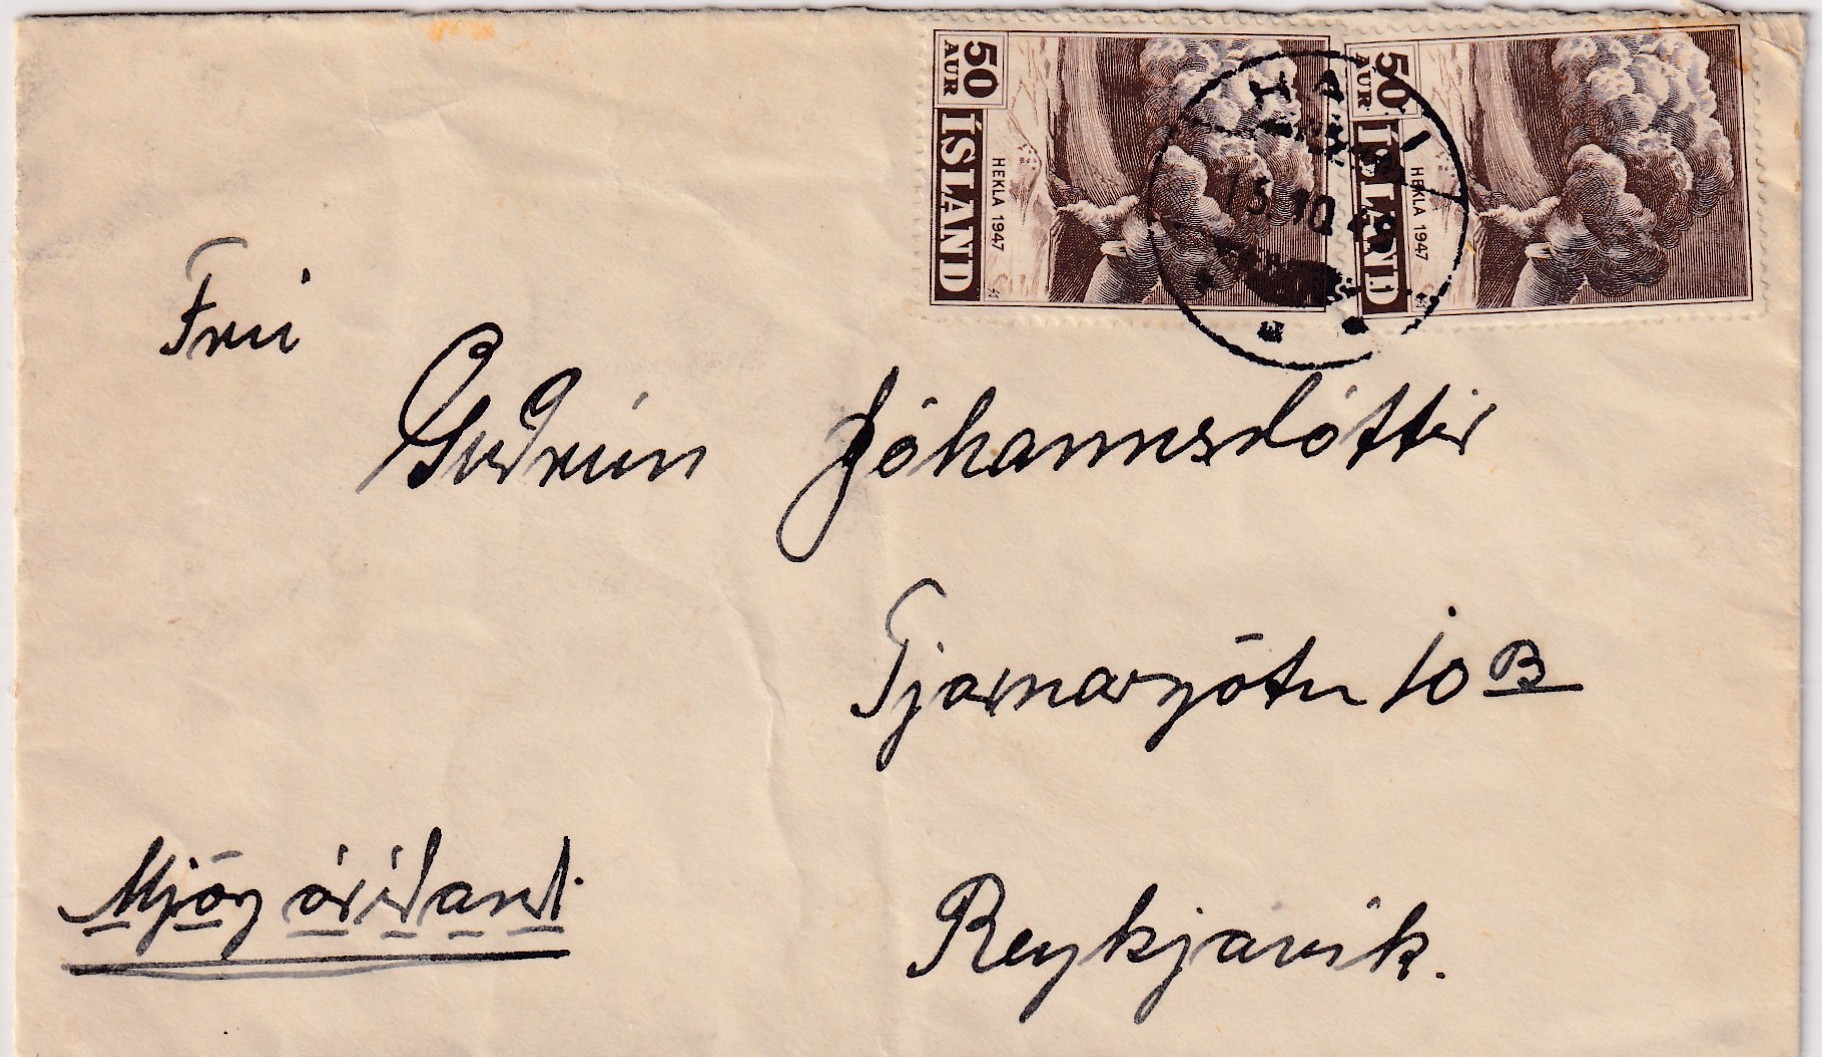 50
AUR
ÍSLAND
HEKLA 1947
50
AUR
ÍSLAND
HEKLA 1947
Frú
Guðrún Jóhannsdóttir
Tjarnargötu 10 B
Mjög áríðandi
Reykjavík.